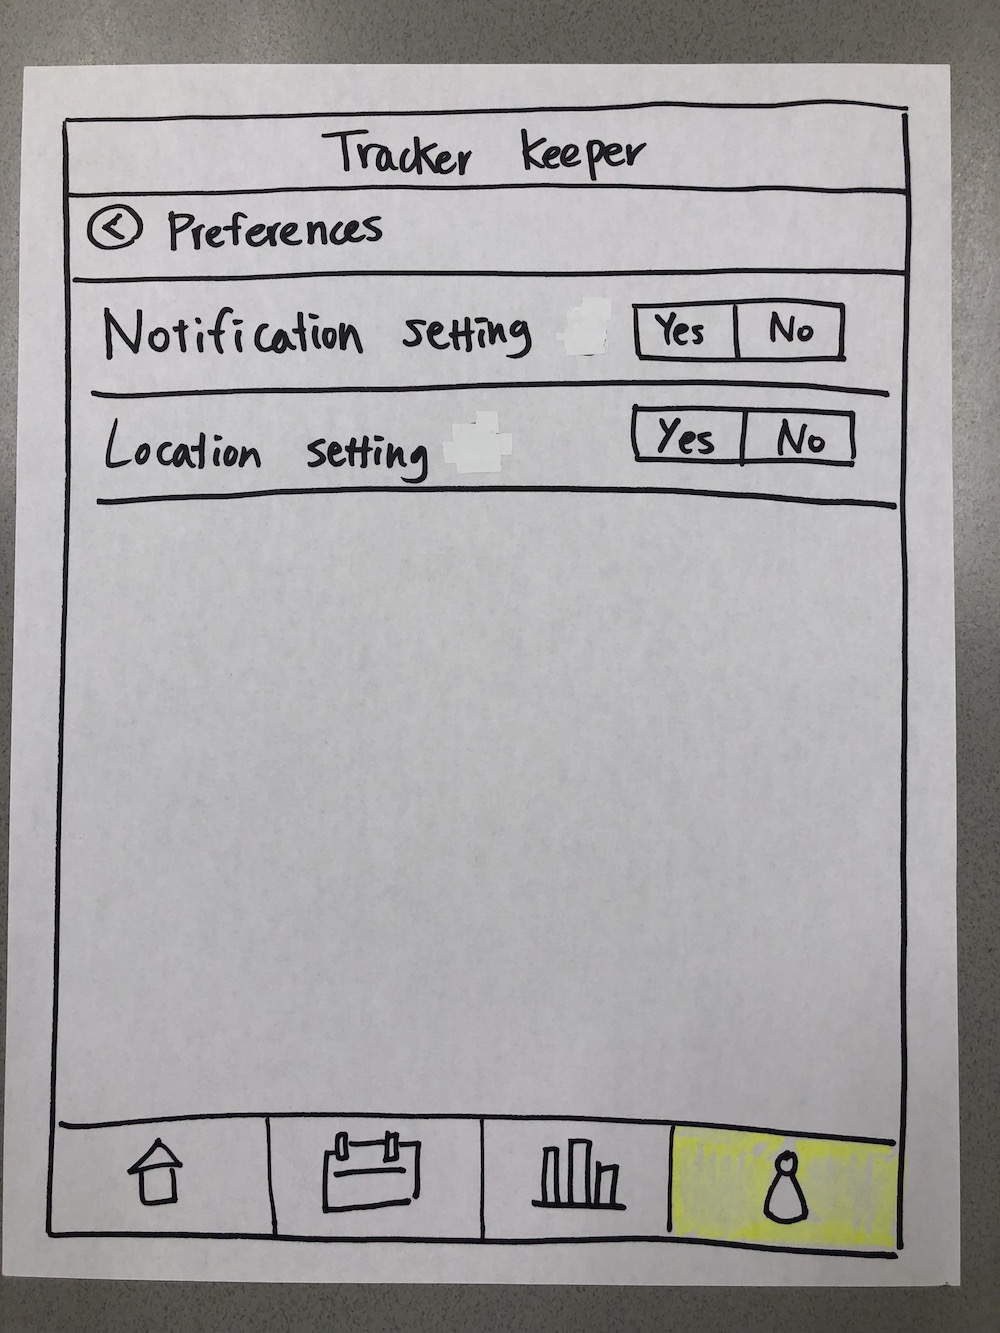 Tracker Keeper
Preferences
Notification setting Yes No
Location setting Yes No